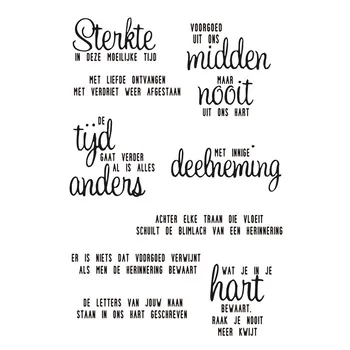 Sterkte
IN DEZE MOEILIJKE TIJD
VOORGOED
UIT ONS
midden
MAAR
nooit
UIT ONS HART
MET LIEFDE ONTVANGEN
MET VERDRIET WEER AFGESTAAN
DE
tijd
GAAT VERDER
AL IS ALLES
anders
MET INNIGE
deelneming
ACHTER ELKE TRAAN DIE VLOEIT
SCHUILT DE BLIMLACH VAN EEN HERINNERING
ER IS NIETS DAT VOORGOED VERWIJNT
ALS MEN DE HERINNERING BEWAART
WAT JE IN JE
hart
BEWAART,
RAAK JE NOOIT
MEER KWIJT
DE LETTERS VAN JOUW NAAN
STAAN IN ONS HART GESCHREVEN